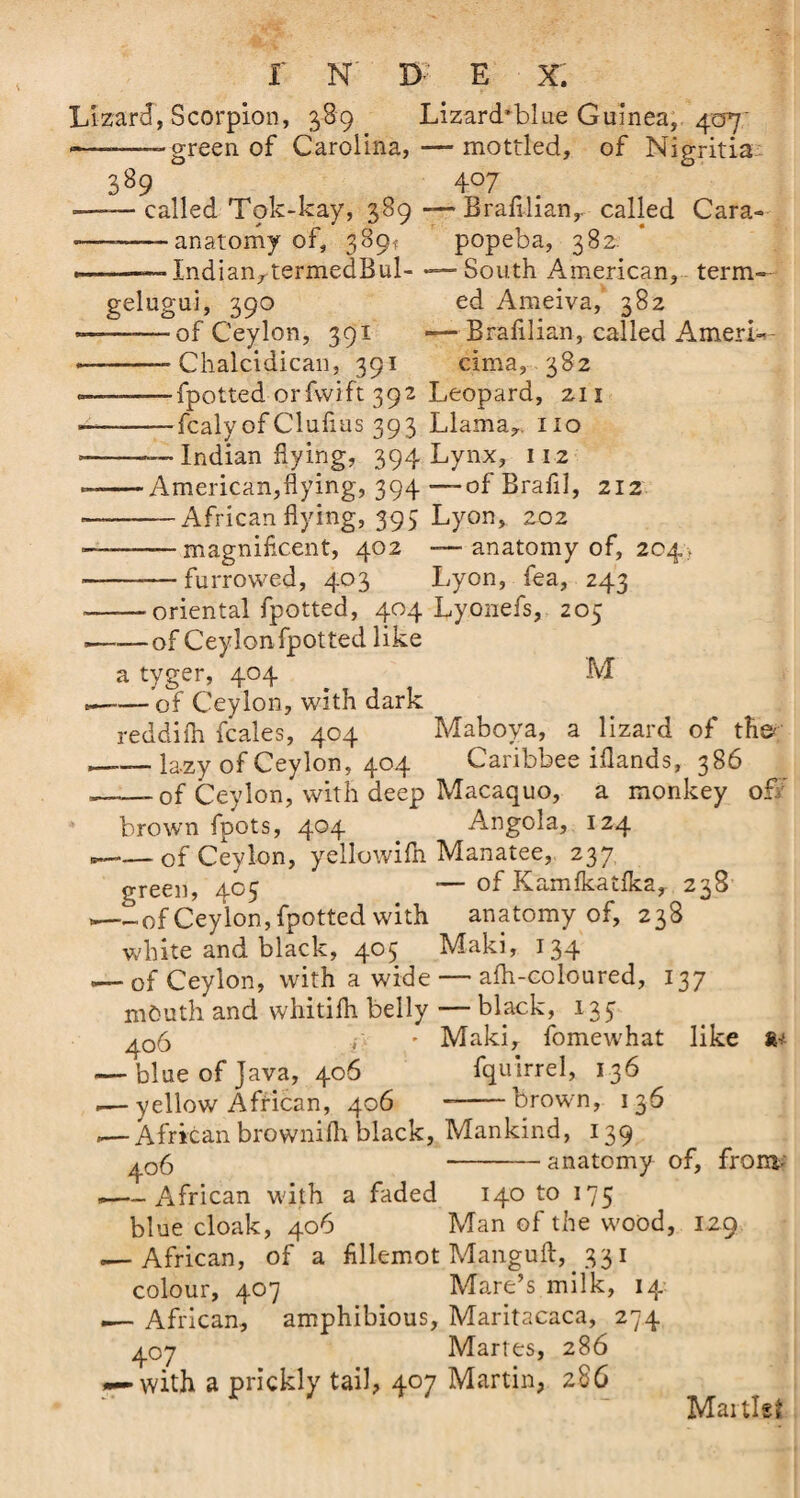 I N D E X.
Lizard, Scorpion, 389
——green of Carolina,
389
—— called Tok-kay, 389
——anatomy of, 389
——Indian, termed Bul-
gelugui, 390
——of Ceylon, 391
——Chalcidican, 391
——ſpotted or ſwift 392
——ſcaly of Cluſius 393
——Indian flying, 394
——American, flying, 394
——African flying, 395
——magnificent, 402
——furrowed, 403
——oriental ſpotted, 404
——of Ceylon ſpotted like
a tyger, 404
——of Ceylon, with dark
reddiſh ſcales, 404
——lazy of Ceylon, 404
——of Ceylon, with deep
brown ſpots, 404
——of Ceylon, yellowiſh
green, 405
——of Ceylon, ſpotted with
white and black, 405
— of Ceylon, with a wide
mouth and whitiſh belly
406
— blue of Java, 406
— yellow African, 406
— African browniſh black,
406
—— African with a faded
blue cloak, 406
— African, of a fillemot
colour, 407
— African, amphibious,
407
— with a prickly tail, 407
Lizard blue Guinea, 407
— mottled, of Nigritia
407
— Braſilian, called Cara-
popeba, 382
— South American, term-
ed Ameiva, 382
— Braſilian, called Ameri-
cima, 382
Leopard, 211
Llama, 110
Lynx, 112
—of Braſil, 212
Lyon, 202
— anatomy of, 204
Lyon, ſea, 243
Lyoneſs, 205
M
Maboya, a lizard of the
Caribbee iſlands, 386
Macaquo, a monkey of
Angola, 124
Manatee, 237
— of Kamſkatſka, 238
anatomy of, 238
Maki, 134
— aſh-coloured, 137
— black, 135
Maki, ſomewhat like a
ſquirrel, 136
——brown, 136
Mankind, 139
——anatomy of, from
140 to 175
Man of the wood, 129
Manguſt, 331
Mare's milk, 14
Maritacaca, 274
Martes, 286
Martin, 286
Martlet